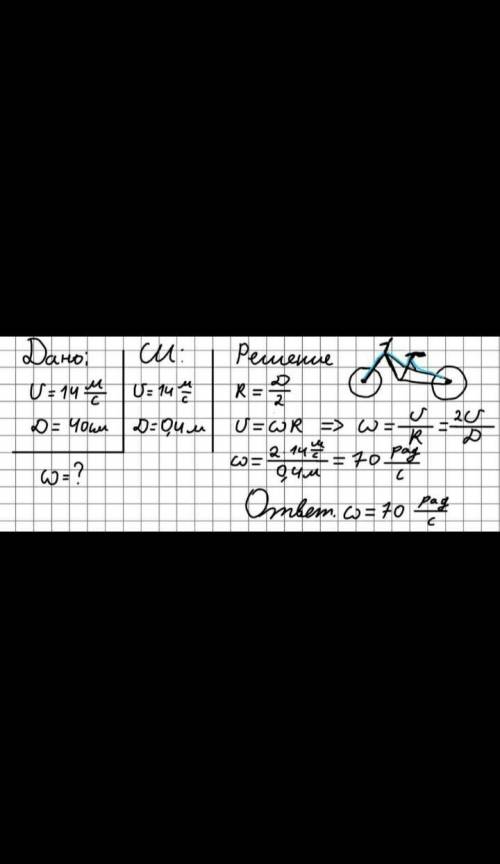 Дано:
υ = 14 м/с
D = 40 см
ω = ?
СИ:
υ = 14 м/с
D = 0,4 м
Решение
R = D/2
υ = ωR => ω = υ/R = 2υ/D
ω = 2·14 м/с / 0,4 м = 70 рад/с
Ответ. ω = 70 рад/с